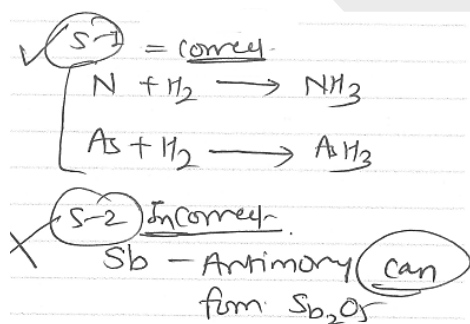 ✓ S-1 = correct
N + H₂ ⟶ NH₃
As + H₂ ⟶ AsH₃
✗ S-2 Incorrect.
Sb – Antimony can
form Sb₂O₅